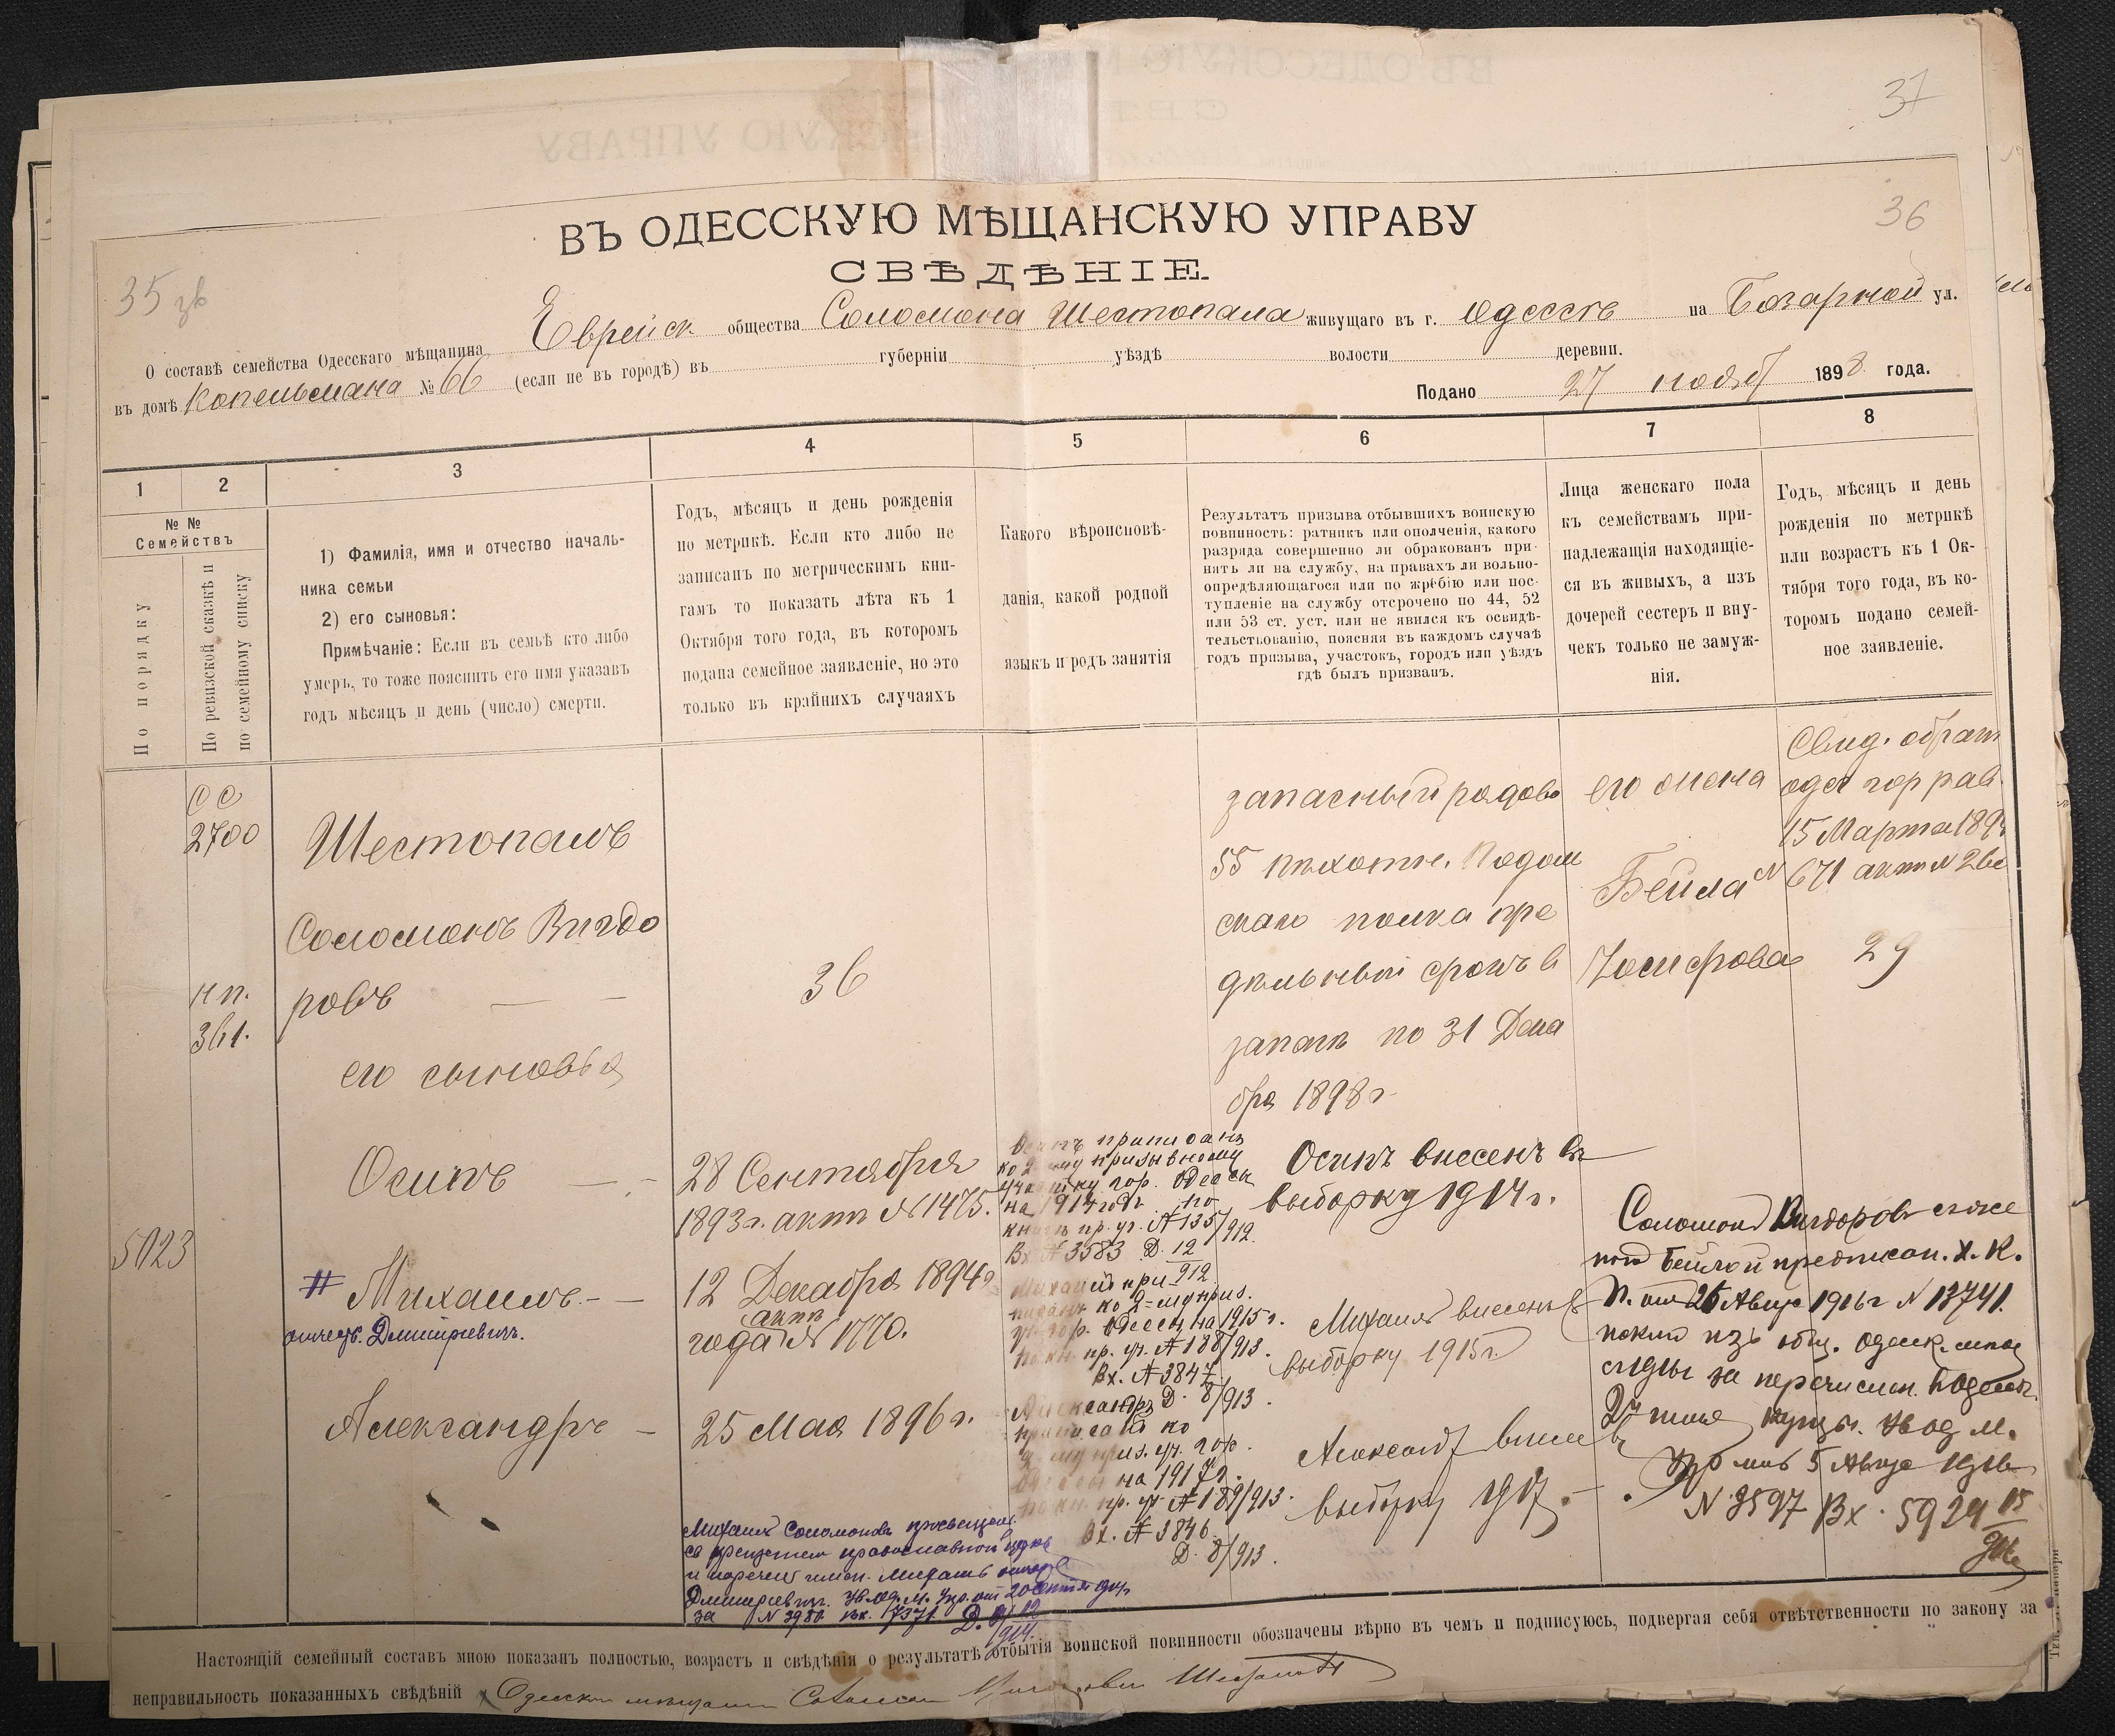 37
36
35 зв
ВЪ ОДЕССКУЮ МѢЩАНСКУЮ УПРАВУ
СВѢДѢНІЕ.
О составѣ семейства Одесскаго мѣщанина Еврейск общества Соломона Шестопала живущаго въ г. Одессѣ на Базарной ул.
въ домѣ Копельмана № 66 (если не въ городѣ) въ губерніи уѣздѣ волости деревни.
Подано 27 нояб 1898 года.
1
2
3
4
5
6
7
8
№ №
Семействъ
По порядку
По ревизской сказкѣ и
по семейному списку
1) Фамилія, имя и отчество началь-
ника семьи
2) его сыновья:
Примѣчаніе: Если въ семьѣ кто либо
умеръ, то тоже пояснить его имя указавъ
годъ мѣсяцъ и день (число) смерти.
Годъ, мѣсяцъ и день рожденія
по метрикѣ. Если кто либо не
записанъ по метрическимъ кни-
гамъ то показать лѣта къ 1
Октября того года, въ которомъ
подана семейное заявленіе, но это
только въ крайнихъ случаяхъ
Какого вѣроисповѣ-
данія, какой родной
языкъ и родъ занятія
Результатъ призыва отбывшихъ воинскую
повинность: ратникъ или ополченія, какого
разряда совершенно ли обракованъ при-
нять ли на службу, на правахъ ли вольно-
опредѣляющагося или по жребію или пос-
тупленіе на службу отсрочено по 44, 52
или 53 ст. уст. или не явился къ освидѣ-
тельствованію, поясняя въ каждомъ случаѣ
годъ призыва, участокъ, городъ или уѣздъ
гдѣ былъ призванъ.
Лица женскаго пола
къ семействамъ при-
надлежащія находящіе-
ся въ живыхъ, а изъ
дочерей сестеръ и вну-
чекъ только не замуж-
нія.
Годъ, мѣсяцъ и день
рожденія по метрикѣ
или возрастъ къ 1 Ок-
тября того года, въ ко-
торомъ подано семей-
ное заявленіе.
СС
2700
нп.
361.
5023
Шестопалъ
Соломонъ Вигдо
ровъ
его сыновья
Осипъ
Михаилъ
отчеств. Дмитріевичъ.
Александръ
36
28 Сентября
1893 г. актъ № 1475.
12 Декабря 1894
года актъ № 1770.
25 Мая 1896 г.
Михаилъ Соломоновъ просвѣщенъ
св крещеніем православной
и нареченъ имен. Михаилъ
Дмитріевичъ.
за № 3980 вх. 7371
Осипъ приписанъ
ко 2-му призывному
участку гор. Одессы
на 1914 годъ по
книгѣ пр. уч. № 135/912.
Вх № 3583 Д. 12/912
Михаилъ при
писанъ ко 2-му приз.
уч. гор. Одессы на 1915 г.
по кн. пр. уч. № 188/913.
Вх. № 3847
Д. 8/913.
Александръ
приписанъ ко
2-му приз. уч. гор.
Одессы на 1917 г.
по кн. пр. уч № 189/913.
Вх. № 3846
Д. 8/913.
запасный рядово
55 пѣхотн. Подол
скаго полка пре
дѣльный срокъ в
запасѣ по 31 Дека
бря 1898 г
Осипъ внесенъ въ
выборку 1914 г.
Михаилъ внесенъ въ
выборку 1915 г
Александръ внесенъ въ
выборку 1917.
его жена
Бейла
Іосифова
Свид. обрат
одес гор рав
15 Марта 189
№ 671 актъ № 26
29
Соломонъ Вигдоровъ съ же
ной Бейлой предписан. Х. К.
П. отъ 26 Авгус 1916 г № 13741.
5 Августа 1916
№ 3597 Вх. 5924
Настоящій семейный составъ мною показанъ полностью, возрастъ и свѣдѣнія о результатѣ отбытія воинской повинности обозначены вѣрно въ чемъ и подписуюсь, подвергая себя отвѣтственности по закону за
неправильность показанныхъ свѣдѣній Одесскій мѣщанинъ Соломон Вигдоровъ Шестопалъ